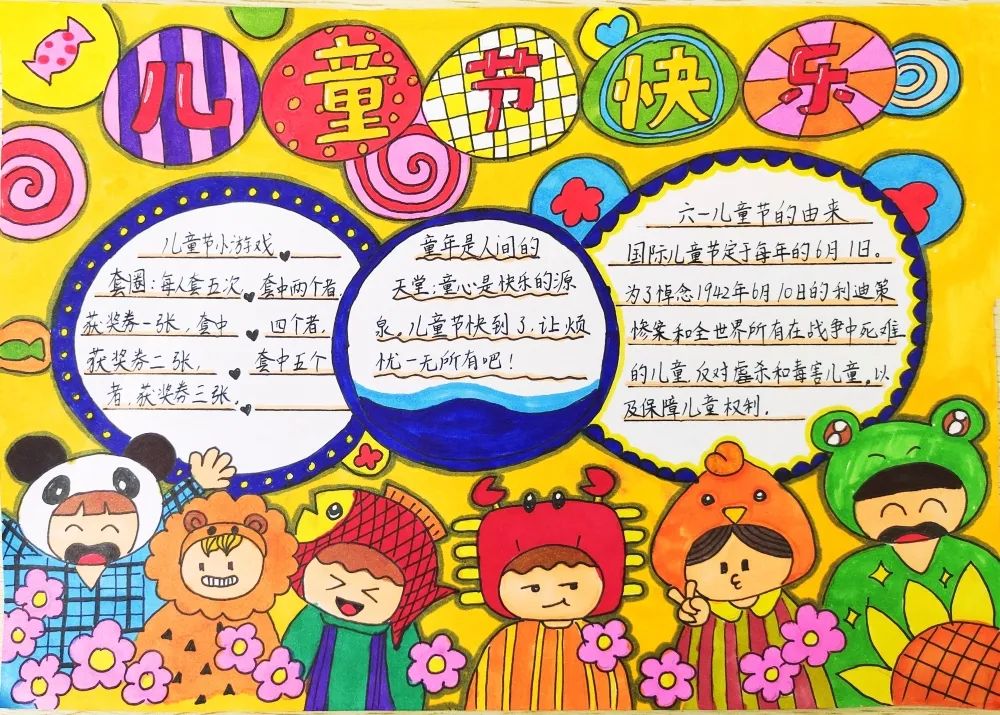 儿童节快乐
儿童节小游戏
套圈：每人套五次，套中两个者，
获奖券一张，套中 四个者，
获奖券二张， 套中五个
者，获奖券三张。
童年是人间的
天堂；童心是快乐的源
泉。儿童节快到了，让烦
忧一无所有吧！
六一儿童节的由来
国际儿童节定于每年的6月1日。
为了悼念1942年6月10日的利迪策
惨案和全世界所有在战争中死难
的儿童，反对虐杀和毒害儿童，以
及保障儿童权利.